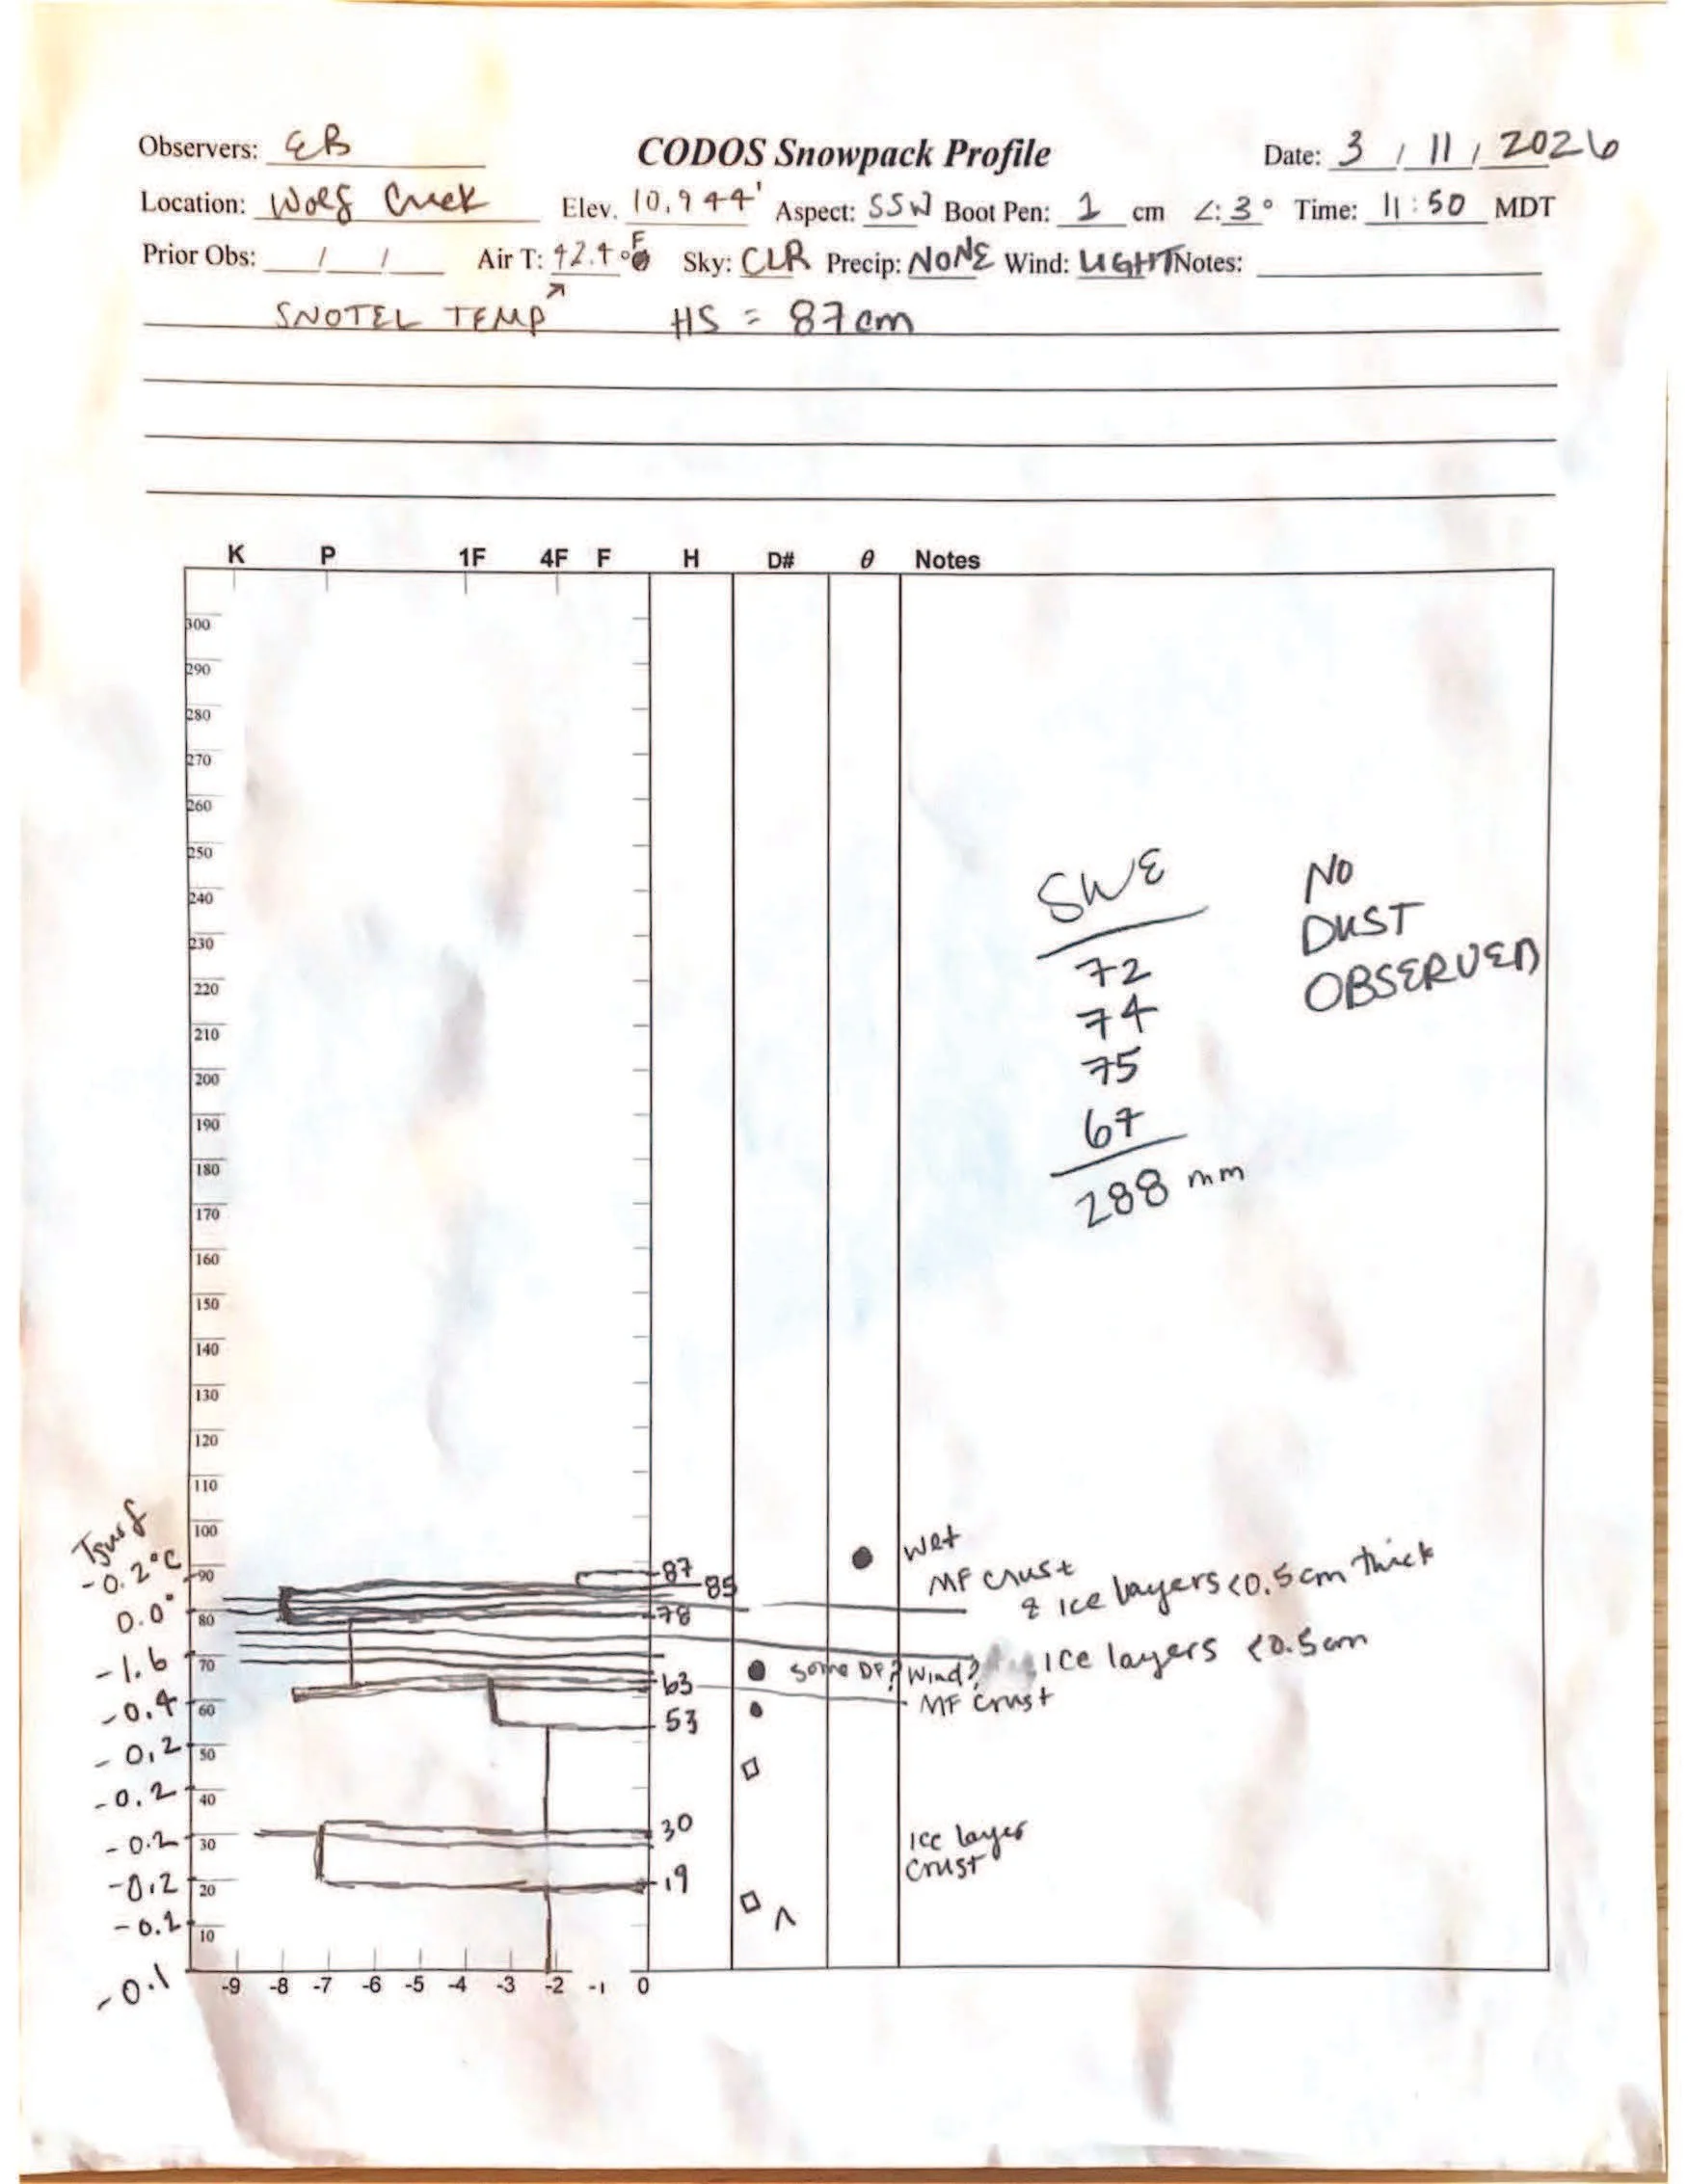 Observers: EB CODOS Snowpack Profile Date: 3 / 11 / 2026
Location: Wolf Creek Elev. 10,944' Aspect: SSW Boot Pen: 1 cm ∠: 3° Time: 11:50 MDT
Prior Obs: / / Air T: 42.4 °F Sky: CLR Precip: NONE Wind: LIGHT Notes:
SNOTEL TEMP HS = 87cm
K P 1F 4F F H D# θ Notes
300
290
280
270
260
250
240
230
220
210
200
190
180
170
160
150
140
130
120
110
100
90
80
70
60
50
40
30
20
10
SWE
72
74
75
67
288 mm
NO
DUST
OBSERVED
Tsurf
-0.2°C
0.0°
-1.6
-0.4
-0.2
-0.2
-0.2
-0.2
-0.1
-0.1
87
85
78
63
53
30
19
wet
MF crust
& Ice layers <0.5cm thick
Ice layers <0.5cm
some DF? Wind?
MF crust
Ice layer
crust
-9 -8 -7 -6 -5 -4 -3 -2 -1 0